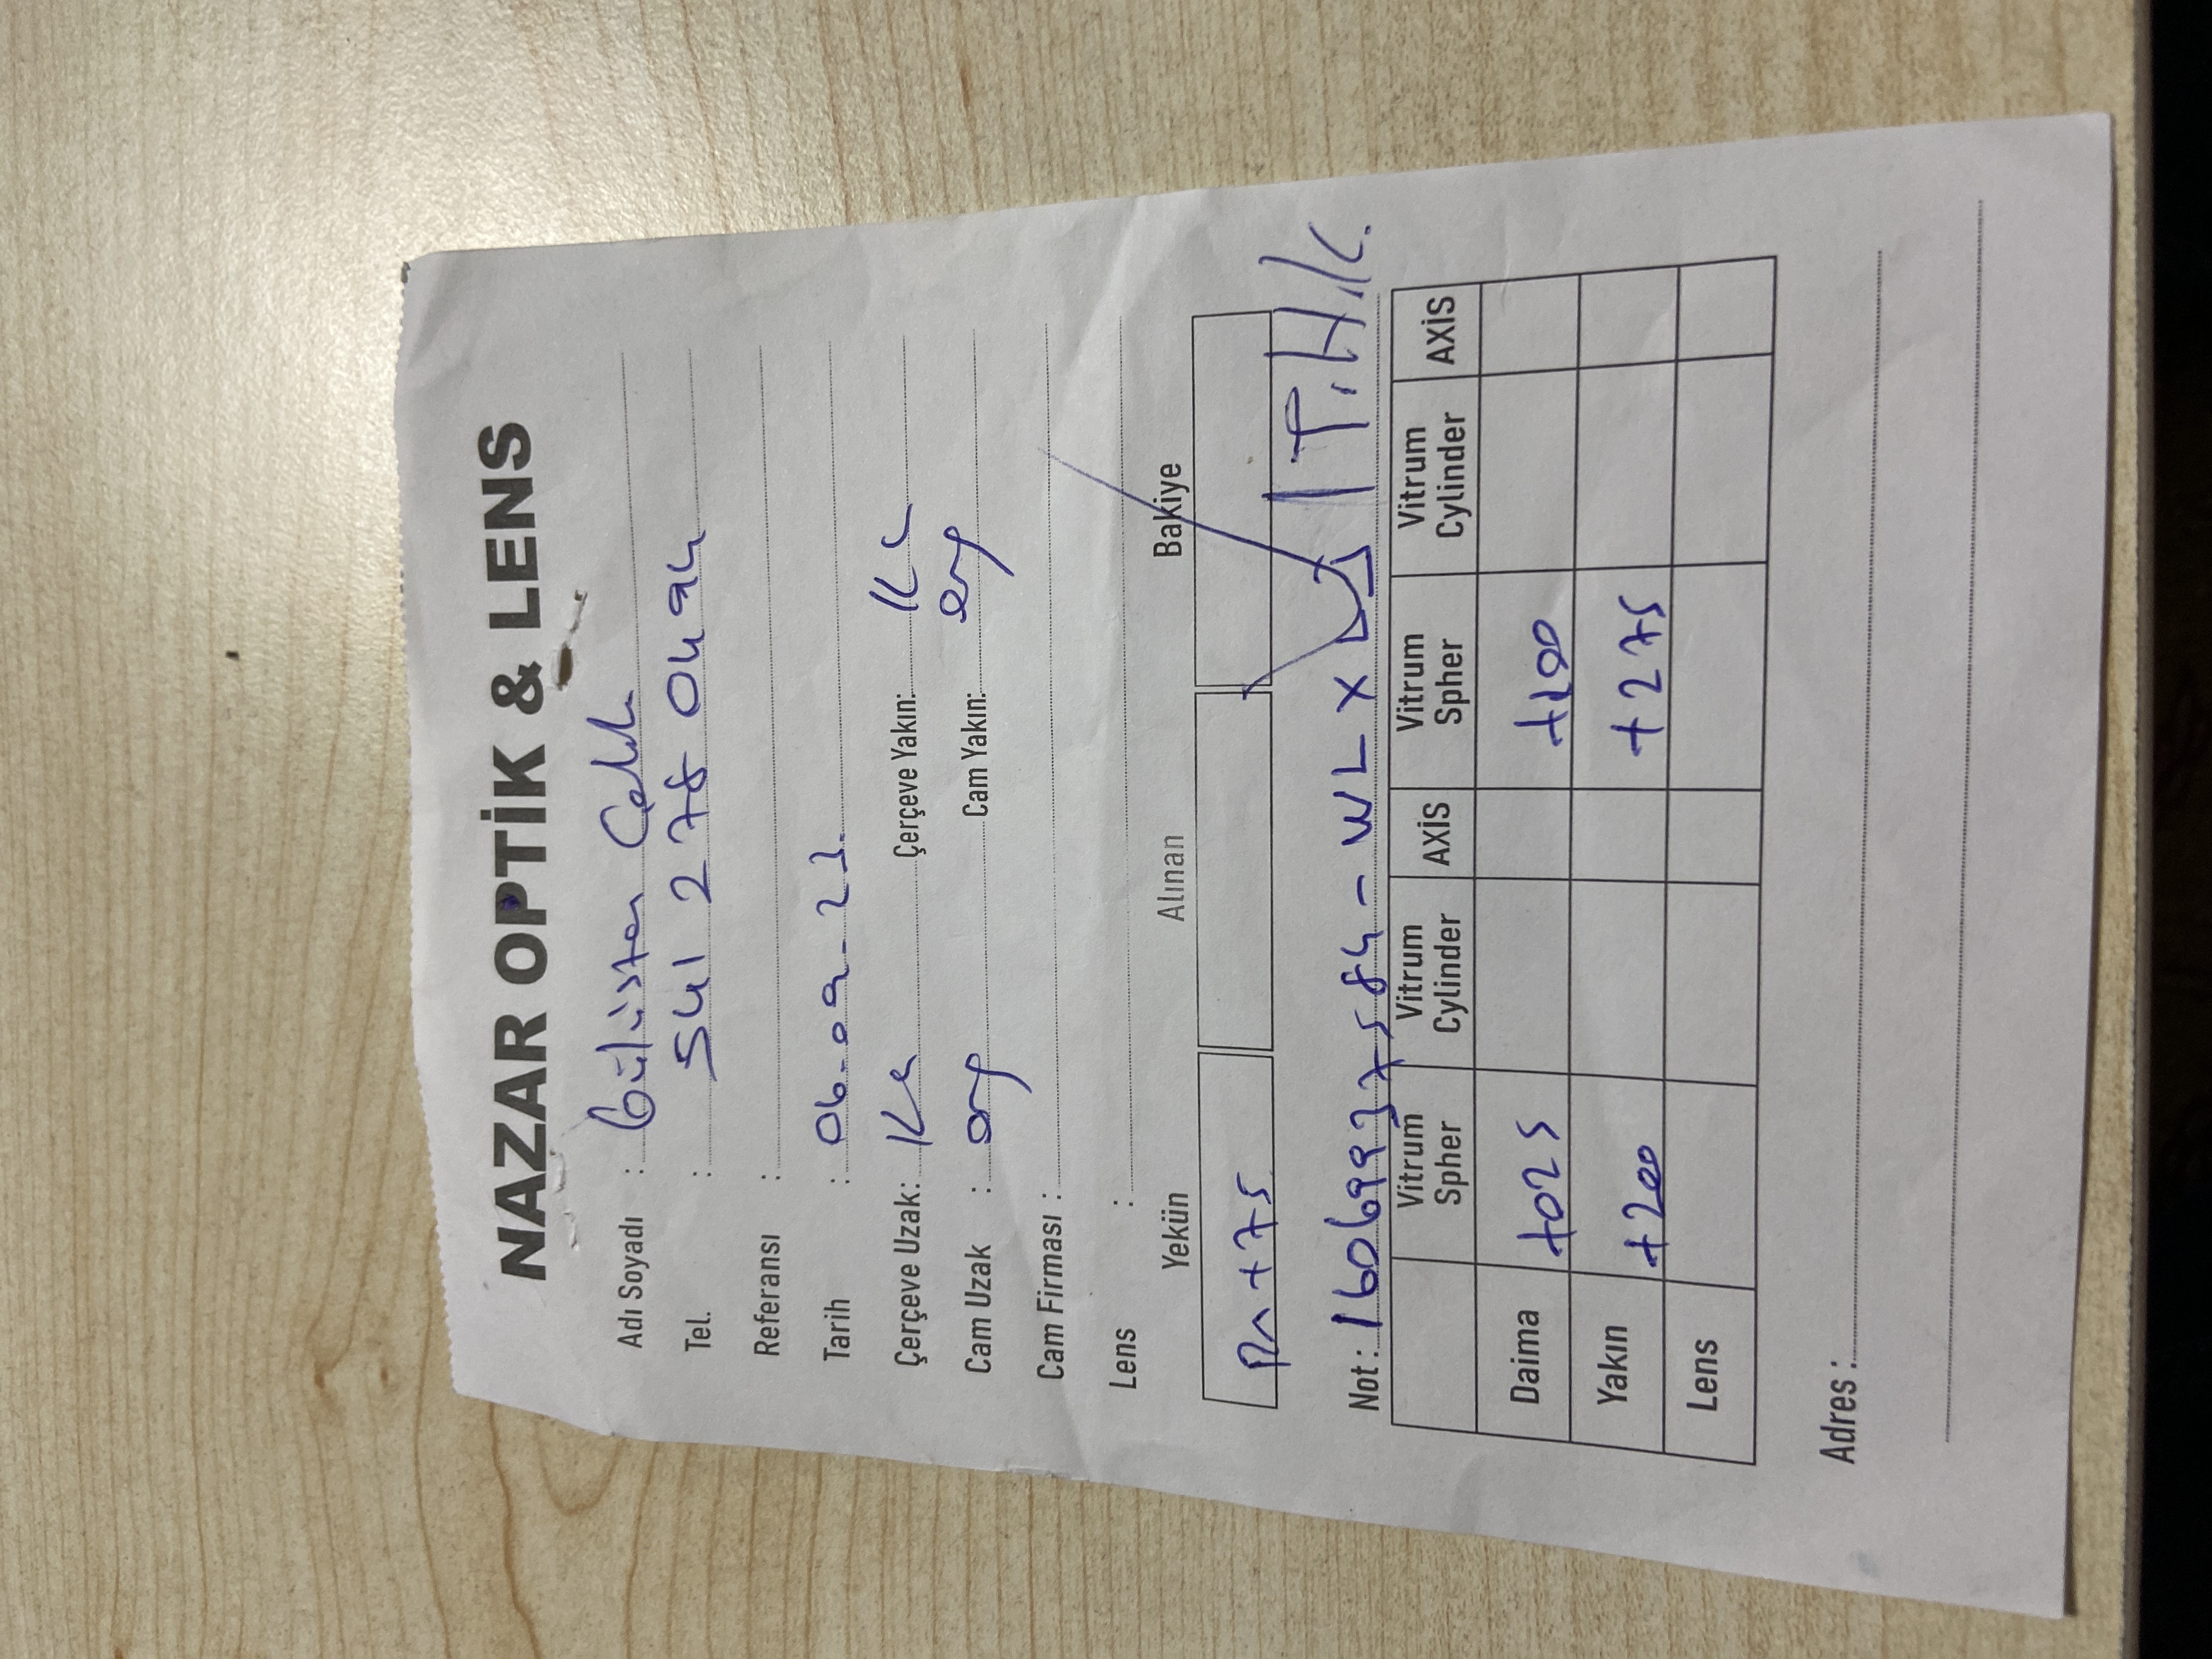 NAZAR OPTİK & LENS
Adı Soyadı : Gülüstan
Tel. : 541 278 0494
Referansı :
Tarih : 06.09.23.
Çerçeve Uzak: Çerçeve Yakın:
Cam Uzak : org Cam Yakın: org
Cam Firması :
Lens :
Yekün Alınan Bakiye
+75
Not: 16069937584 - WL X T.H.K.
Vitrum Spher Vitrum Cylinder AXİS Vitrum Spher Vitrum Cylinder AXİS
Daima +025 +100
Yakın +200 +275
Lens
Adres :